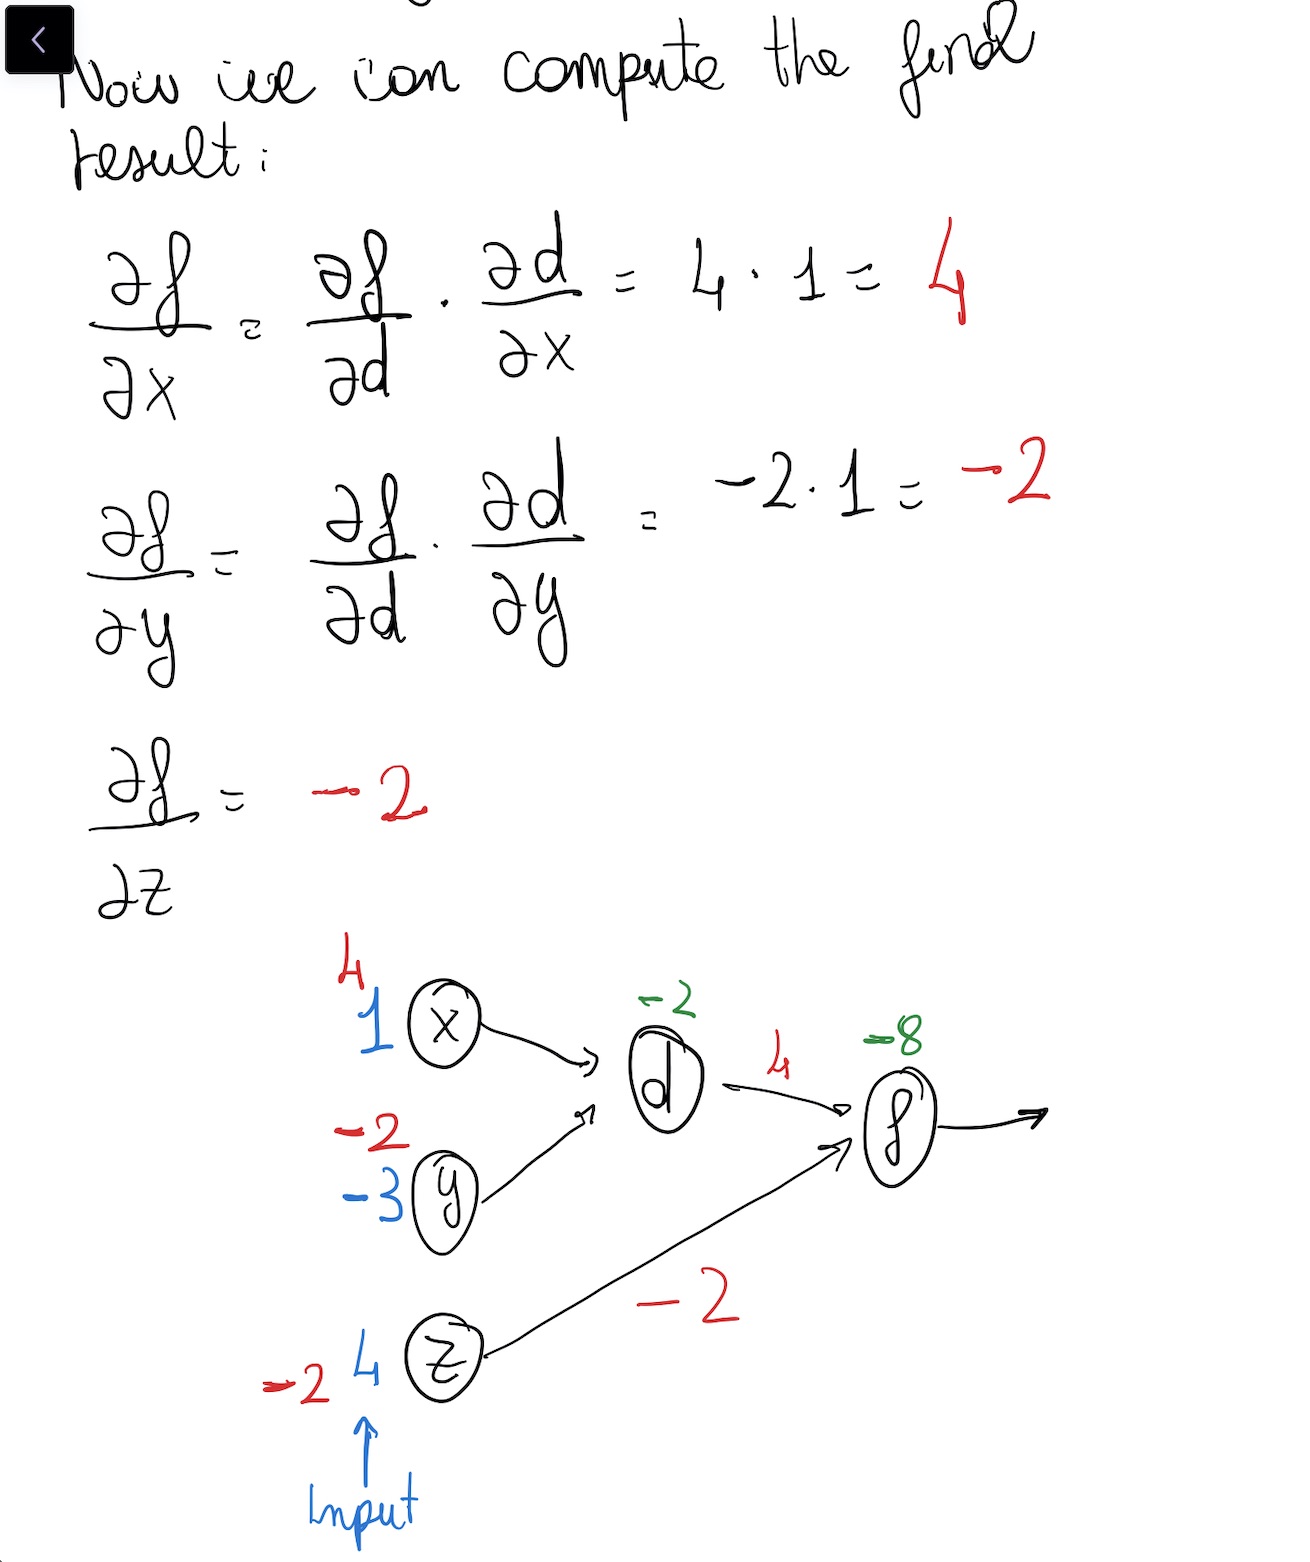 Now we can compute the final
result:
∂f/∂x = ∂f/∂d · ∂d/∂x = 4 · 1 = 4
∂f/∂y = ∂f/∂d · ∂d/∂y = -2 · 1 = -2
∂f/∂z = -2
4
1 x
-2
d
4
-8
f
-2
-3 y
-2
-2 4 z
Input